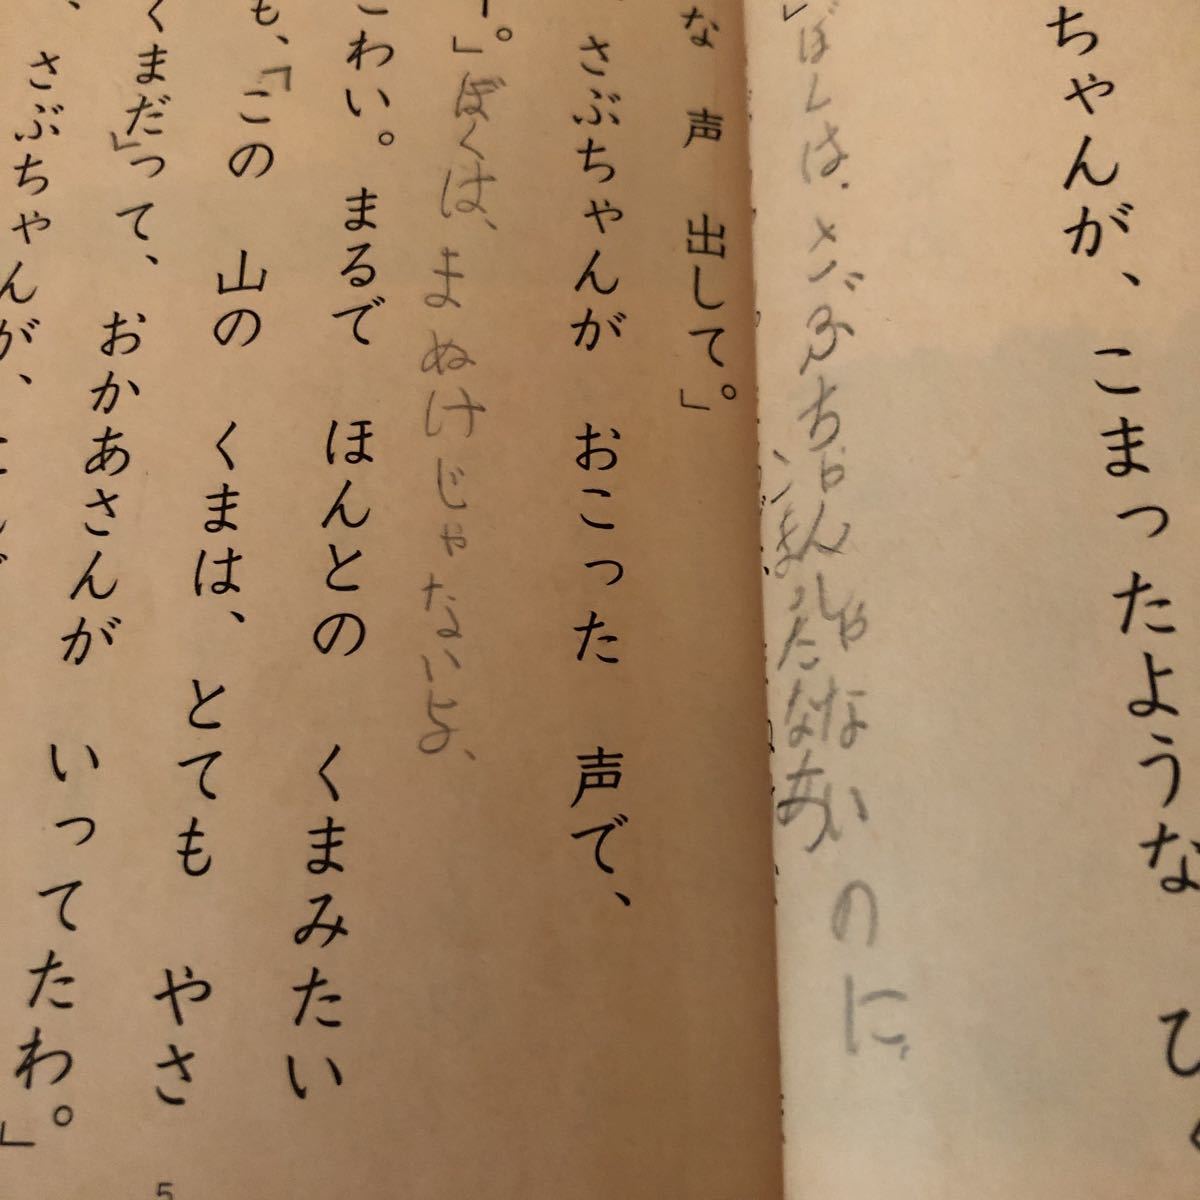 ちゃんが、こまったような
」ぼくは、さぶちゃんじゃないのに、
こまったなあ
な 声 出して。」
、さぶちゃんが おこった 声で、
ー。」ぼくは、まぬけじゃないよ、
こわい。 まるで ほんとの くまみたい
も、「この 山の くまは、とても やさ
くまだ」って、おかあさんが いってたわ。」
、さぶちゃんが、
5